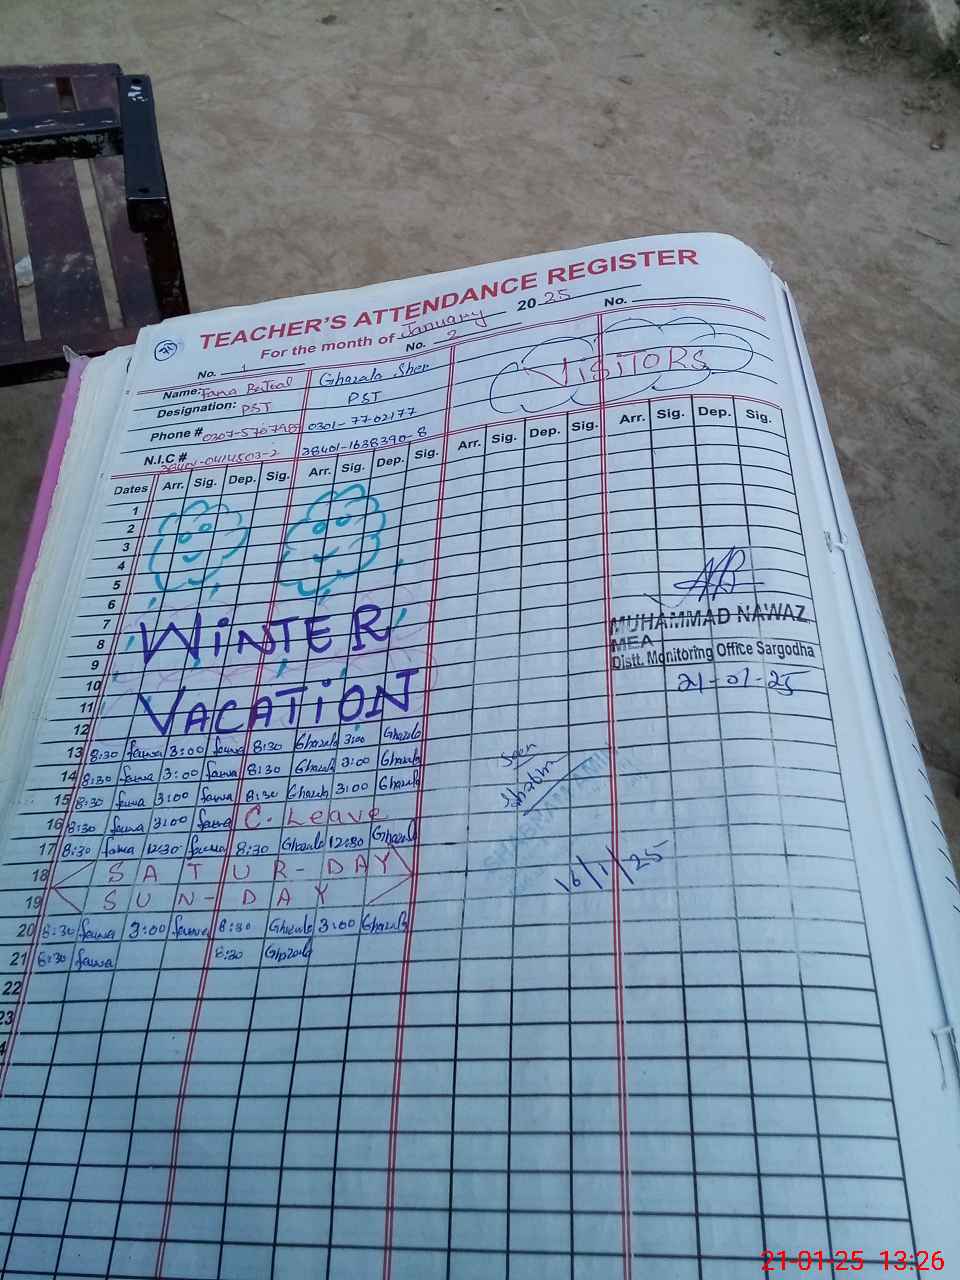 TEACHER'S ATTENDANCE REGISTER
For the month of January 2025
No. 1 No. 2 No.
Name: Ghazala Sher
Designation: PST PST
VISITORS
Phone # 0301-7702177
N.I.C # 38401-1638390-8
Dates Arr. Sig. Dep. Sig. Arr. Sig. Dep. Sig. Arr. Sig. Dep. Sig. Arr. Sig. Dep. Sig.
1
2
3
4
5
6
7
8
9
10
11
12
WINTER
VACATION
MUHAMMAD NAWAZ
MEA
Distt. Monitoring Office Sargodha
21-01-25
13 8:30 3:00 8:30 Ghazala 3:00 Ghazala
14 8:30 3:00 8:30 Ghazala 3:00 Ghazala
15 8:30 3:00 8:30 Ghazala 3:00 Ghazala
16 8:30 3:00 C. Leave
17 8:30 12:30 8:30 Ghazala 12:30 Ghazala
18 SATUR-DAY
19 SUN-DAY
20 8:30 3:00 8:30 Ghazala 3:00 Ghazala
21 8:30 8:30 Ghazala
22
23
Seen
16/1/25
21-01-25 13:26